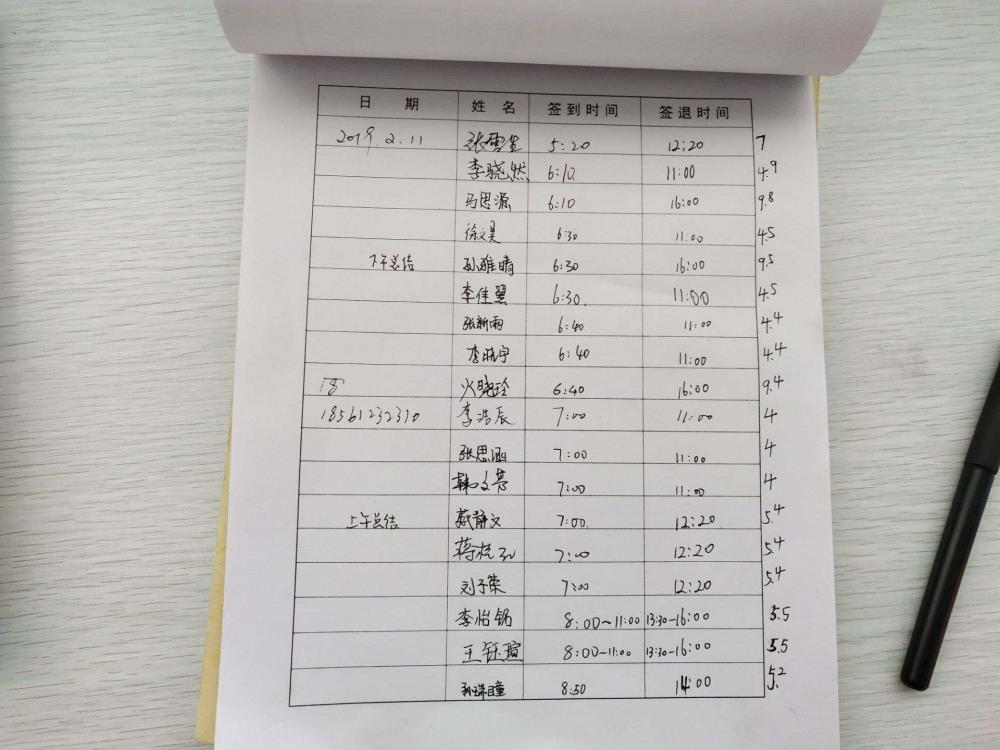 日 期 姓 名 签到时间 签退时间
2019.2.11 张雪莹 5:20 12:20 7
李骁然 6:10 11:00 4.9
马思源 6:10 16:00 9.8
徐文昊 6:30 11:00 4.5
下午总结 孙雅晴 6:30 16:00 9.5
李佳翼 6:30. 11:00 4.5
张新雨 6:40 11:00 4.4
李晓宇 6:40 11:00 4.4
火晓玲 6:40 16:00 9.4
18561232310 李浩辰 7:00 11:00 4
张思涵 7:00 11:00 4
韩文慧 7:00 11:00 4
上午总结 静文 7:00. 12:20 5.4
蒋 7:00 12:20 5.4
刘子荣 7:00 12:20 5.4
李怡铭 8:00~11:00 13:30-16:00 5.5
王钰瑄 8:00~11:00 13:30-16:00 5.5
孙瞳 8:50 14:00 5.2